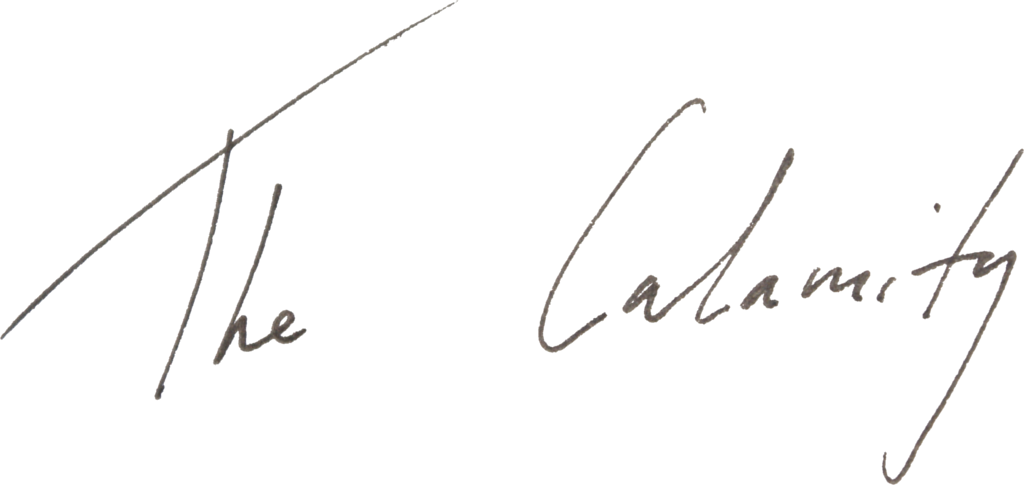 The Calamity